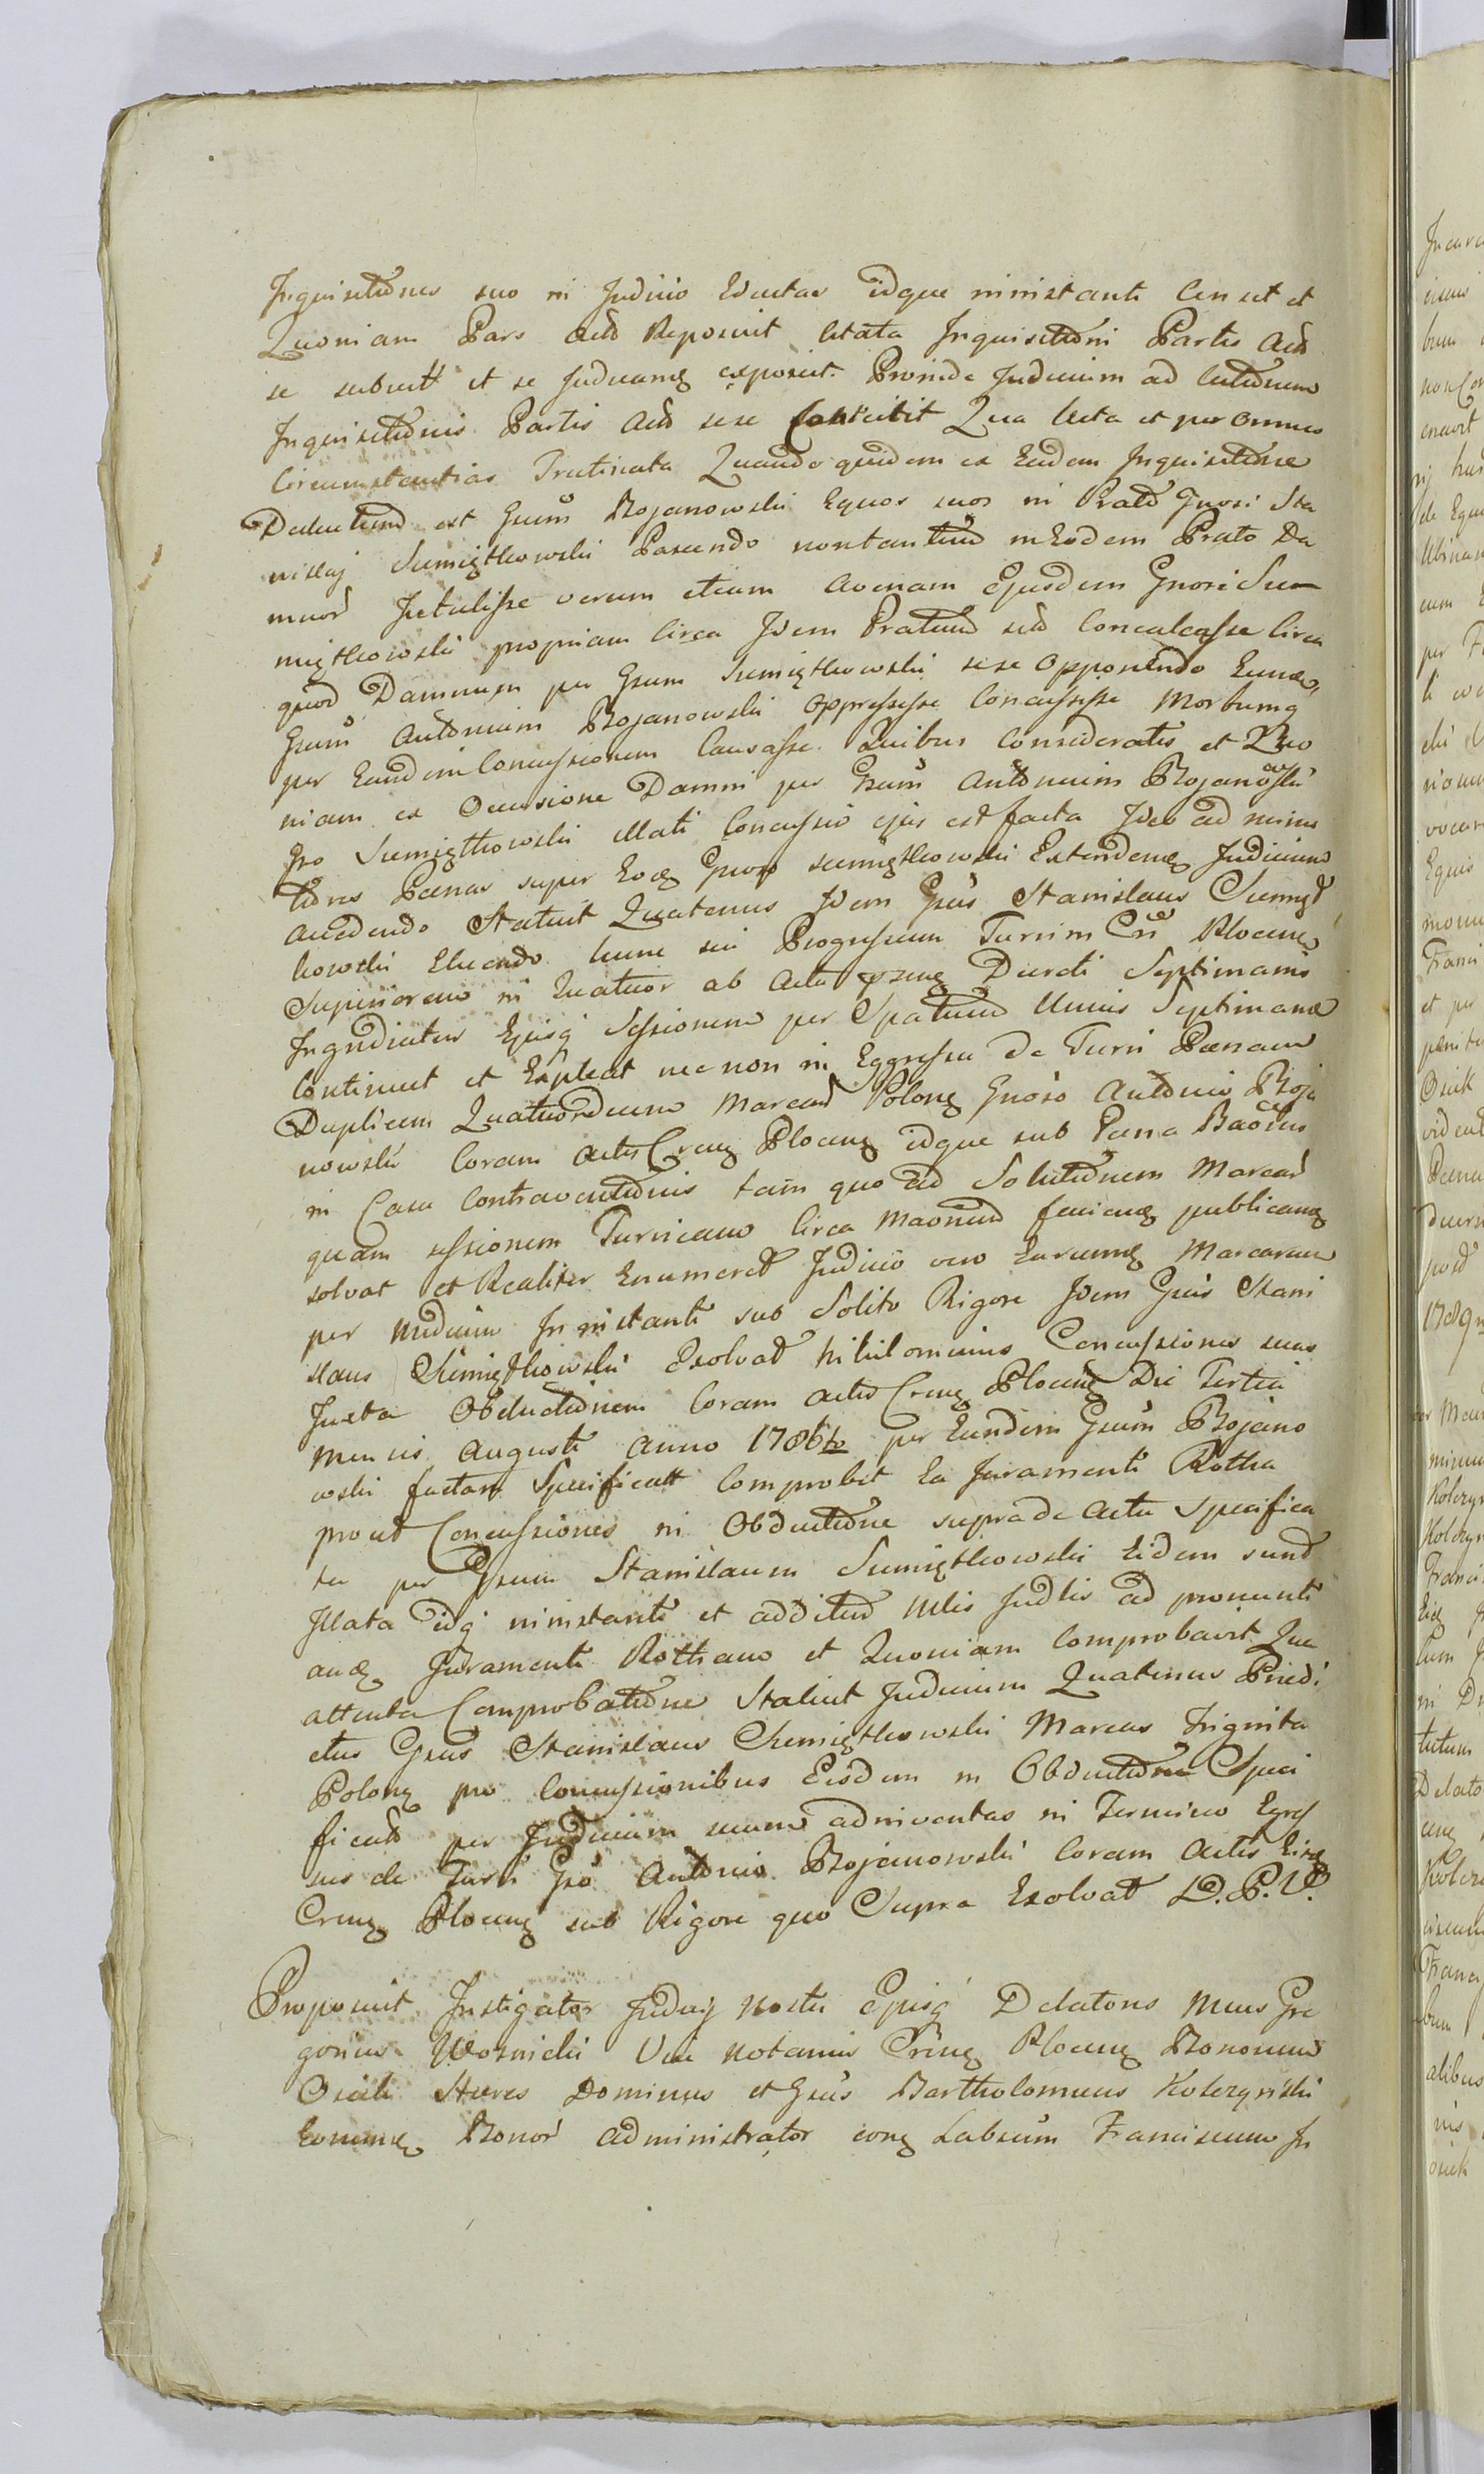 Inquisitiones suo in Judicio Eductas idque ininstanti Censet et
Quoniam Pars Actō Reposuit citata Inquisitioni Partis Actō
se subscr̃ et se Judicanq exposuit. Proinde Judicium ad lectionem
Inquisitionis Partis Actō sese Contulit Qua lecta et per omnes
Circumstantias Trutinata Quandoquidem ex Eadem Inquisitione
Deductum est Gsum Bojanowski Equos suos in Prato Gnosi Sta
nislai Sumiętkowski Pascendo nontantum in Eodem Prato Da
mnor Intulisse verum etiam avenam Ejusdem Gnosi Su
miętkowski propriam Circa Idem Pratum sitō Conculcasse Circa
quod Damnum per Gsum Sumiętkowski sese Opponendo Eundem
Gsum Antonium Bojanowski oppressisse Concussisse Morbumq
per Eandem Concussionem Causasse. Quibus Consideratis et Quo
niam ex Occasione Damni per Gsum Antonium Bojanowski
Gso Sumiętkowski illati Concussio ejus est facta Ideo ad minus
Poenas super Gnoso Sumiętkowski Extendenq Judicium
accedendo Statuit Quatenus Idem Gsus Stanislaus Sumięt
kowski Eluendo hunc sui Progressum Turrim Cr̃ Plocen
Superiorem in Quatuor ab Actu p̃senq Decreti Septimanis
Ingrediatur Ejusq Sessionem per Spatium Unius Septimanæ
Continuet et Expleat nec non in Eggressu de Turri Pœnam
Duplicem Quatuordecim Marcarū Polonq Gnoso Antonio Boja
nowski Coram Actis Crenq Plocenq idque sub Pœna
in Casu Contraventionis tam quo ad Solutionem Marcarū
quam sessionem Turricam Circa publicanq
solvat et Realiter Enumeret Judicio vero Earumq Marcarum
per medium Ininstanti sub Solito Rigore Idem Gsus Stani
slaus Sumiętkowski Exolvat Nihilominus Concussiones suas
Juxta Obductionem Coram Actis Crenq Plocenq Die Tertia
Mensis Augusti Anno 1786to per Eundem Gsum Bojano
wski factam Specificatt Comprobet Ea Juramenti Rotha
prout Concussiones in Obductione supra de Actu Specifica
tæ per Gsum Stanislaum Sumiętkowski Eidem sunt
Illata idq ininstanti et additur Mtis Judtis ad pronunti
anq Juramenti Rotham et Quoniam Comprobavit Qua
attenta Comprobatione Statuit Judicium Quatenus Prædi
ctus Gsus Stanislaus Sumiętkowski Marcas Triginta
Polonq pro Concussionibus Eisdem in Obductione Speci
ficatō per Judicium suum adinventas in Termino Egres
sus de Turri Gso Antonio Bojanowski Coram Actis Eisq
Crenq Plocenq sub Rigore quo Supra Exolvat D. P. V.
Proposuit Instigator Judicij Nostri Ejusq Delatons Mcus Gre
gorius Woznicki Vice Notarius Crenq Plocenq Bonorum
Osiek Hæres Dominus et Gsus Bartholomeus Kolczyński
Eorumq Bonor̃ administrator conq Labsum Franciscum In